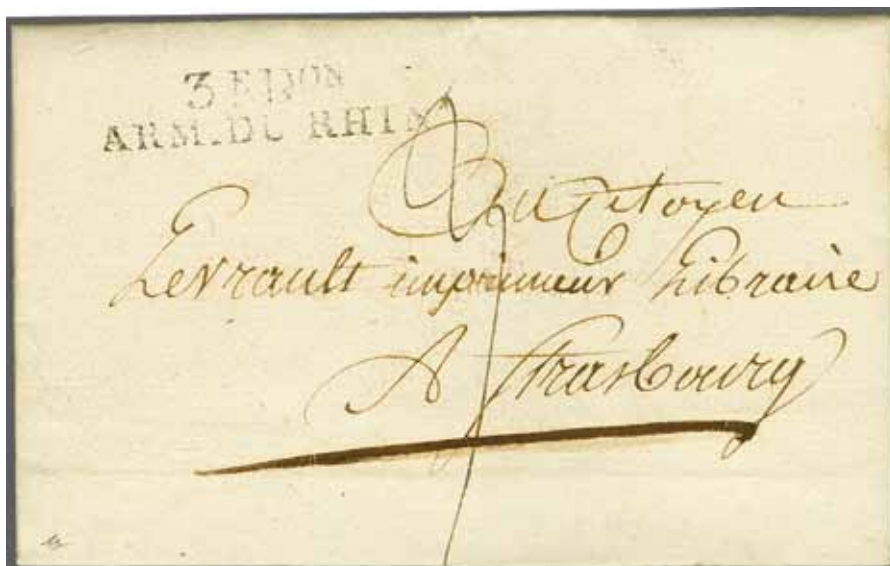 3E DON
ARM. DU RHIN
Au Citoyen
Levrault imprimeur Libraire
A Strasbourg